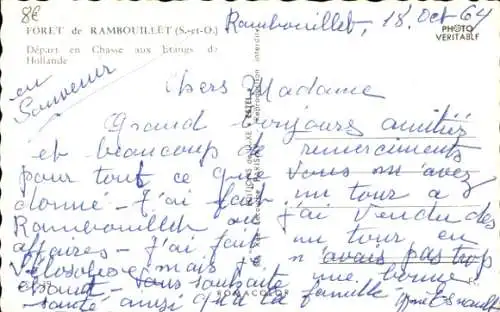 8€
FORET de RAMBOUILLET (S.-et-O.)
Départ en Chasse aux Etangs de
Hollande
Rambouillet, 18 Oct 64
PHOTO
VERITABLE
en
Souvenir
Chers Madame
Grand toujours amitiez
et beaucoup de remerciments
pour tout ce que vous m'avez
donné - J'ai fait un tour a
Rambouillet ou j'ai vendu des
affaires - J'ai fait un tour en
Velosolex mais je n'avais pas trop
chaud - Vous souhaite une bonne
santé ainsi qu'a la famille
ROMACOLOR
Reproduction interdite